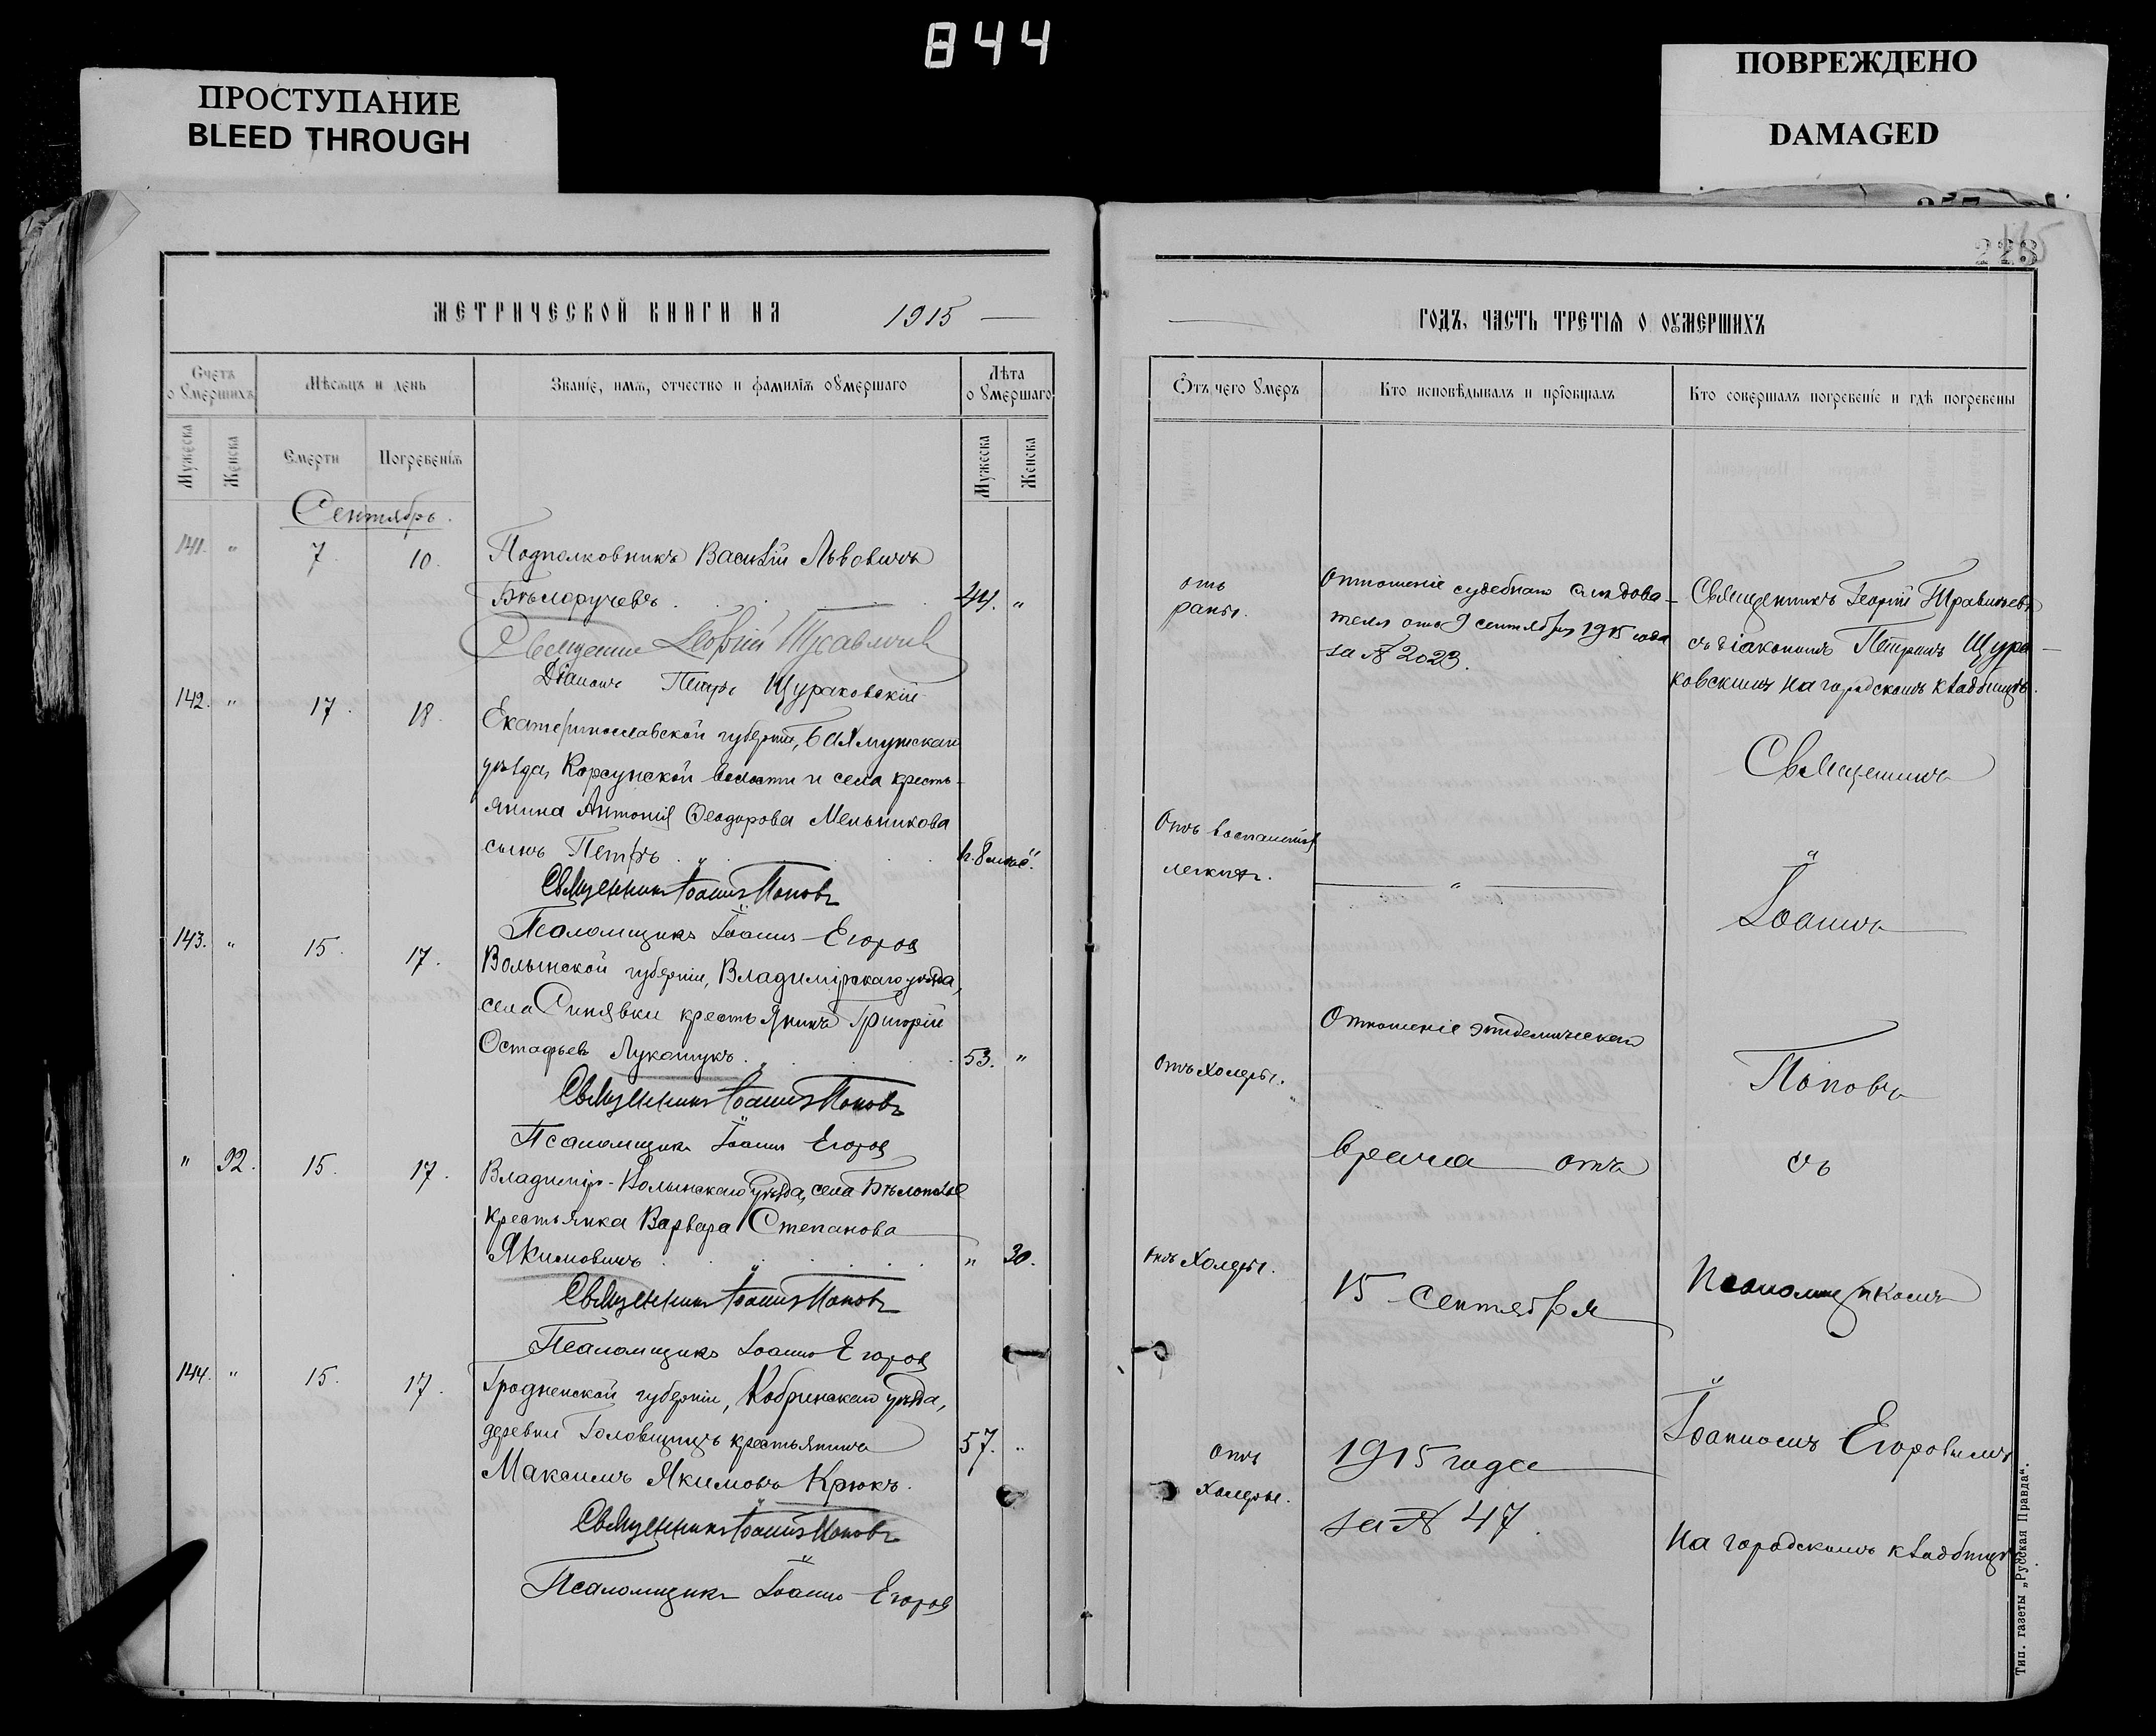 844
ПРОСТУПАНИЕ
BLEED THROUGH
ПОВРЕЖДЕНО
DAMAGED
МЕТРИЧЕСКОЙ КНИГИ НА 1915
Счетъ о умершихъ
Мѣсяцъ и день
Званіе, имя, отчество и фамилія умершаго
Лѣта умершаго
Мужеска
Женска
Смерти
Погребенія
Мужеска
Женска
Сентябрь.
141. " 7. 10. Подполковникъ Василій Львовичъ
Бѣлоручевъ . . . 44. "
Священник Георгій
Діаконъ Петръ Щураковскій
142. " 17. 18. Екатеринославской губерніи, Бахмутскаго
уѣзда, Корсунской волости и села кресть-
янина Антонія Ѳеодорова Мельникова
сынъ Петръ . . .
Священникъ Іоаннъ Поповъ
Псаломщикъ Іоаннъ Егоров
143. " 15. 17. Волынской губерніи, Владимірскаго уѣзда,
села Синявки крестьянинъ Григорій
Остафьев Лукашукъ . . . 53. "
Священникъ Іоаннъ Поповъ
Псаломщикъ Іоаннъ Егоров
" 92. 15. 17. Владимір-Волынскаго уѣзда, села
крестьянка Варвара Степанова
Якимовичъ . . . " 30.
Священникъ Іоаннъ Поповъ
Псаломщикъ Іоаннъ Егоров
144. " 15. 17. Гродненской губерніи, Кобринскаго уѣзда,
деревни Головщицъ крестьянинъ 57. "
Максимъ Якимовъ Крюкъ.
Священникъ Іоаннъ Поповъ
Псаломщикъ Іоаннъ Егоров
228
ГОДЪ, ЧАСТЬ ТРЕТІЯ О УМЕРШИХЪ
Отъ чего умеръ
Кто исповѣдывалъ и пріобщалъ
Кто совершалъ погребеніе и гдѣ погребены
отъ
раны.
Отношеніе судебнаго слѣдова-
теля отъ 9 сентября 1915 года
за № 2023.
Священникъ Георгій
съ діакономъ Петромъ Щура-
ковскимъ на городскомъ кладбищѣ.
Отъ воспаленія
легкихъ.
"
Отъ холеры.
Отъ холеры.
отъ
холеры.
Отношеніе эпидемическаго
врача отъ
15 сентября
1915 года
за № 47.
Священникъ
Іоаннъ
Поповъ
съ
псаломщикомъ
Іоанномъ Егоровымъ
на городскомъ кладбищѣ.
Тип. газеты „Русская Правда“.